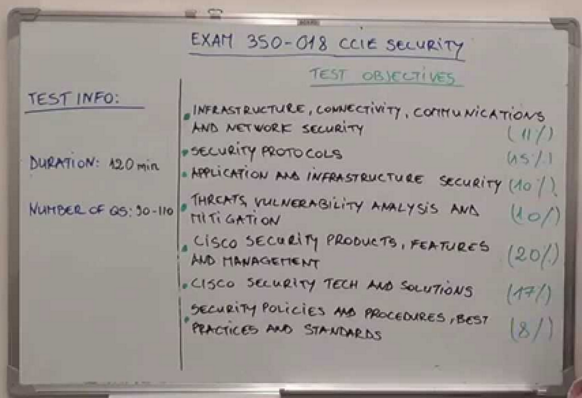 EXAM 350-018 CCIE SECURITY
TEST OBJECTIVES
TEST INFO:
DURATION: 120 min
NUMBER OF QS: 90-110
INFRASTRUCTURE, CONNECTIVITY, COMMUNICATIONS
AND NETWORK SECURITY (11%)
SECURITY PROTOCOLS (15%)
APPLICATION AND INFRASTRUCTURE SECURITY (10%)
THREATS, VULNERABILITY ANALYSIS AND
MITIGATION (10%)
CISCO SECURITY PRODUCTS, FEATURES
AND MANAGEMENT (20%)
CISCO SECURITY TECH AND SOLUTIONS (17%)
SECURITY POLICIES AND PROCEDURES, BEST
PRACTICES AND STANDARDS (8%)